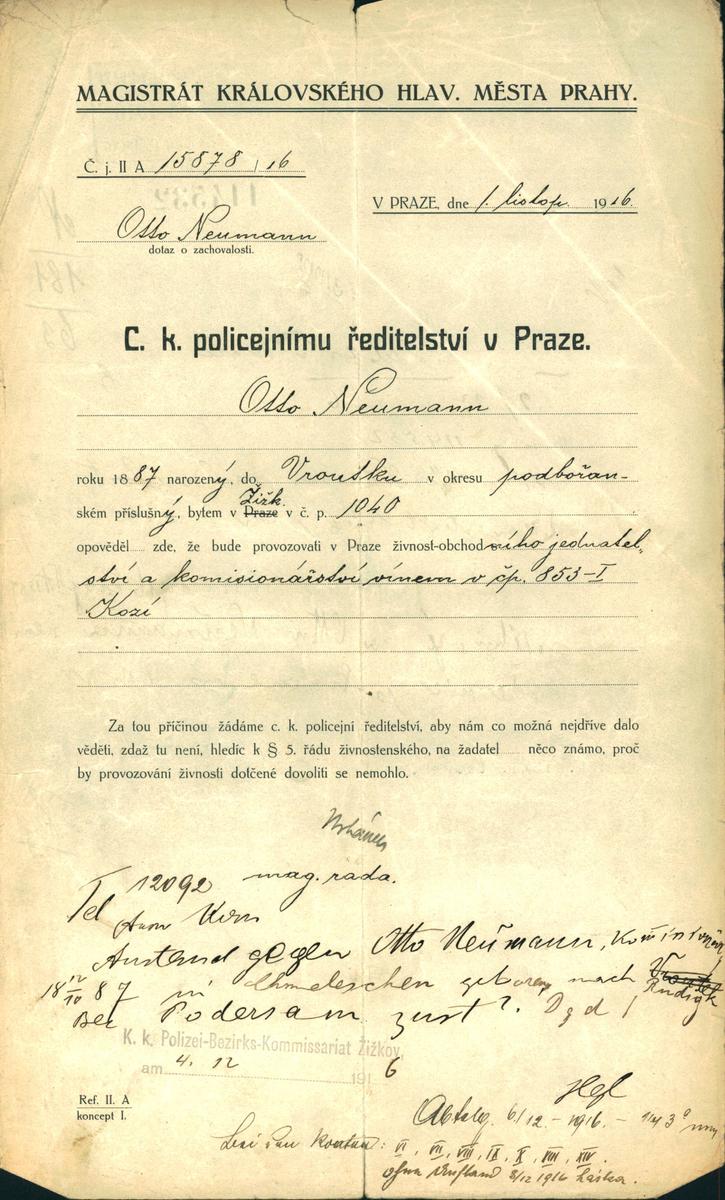 MAGISTRÁT KRÁLOVSKÉHO HLAV. MĚSTA PRAHY.
Č. j. II A 15878 / 16
V PRAZE, dne 1. listop. 1916.
Otto Neumann
dotaz o zachovalosti.
C. k. policejnímu ředitelství v Praze.
Otto Neumann
roku 1887 narozený, do Vroutku v okresu podbořan-
Žižk.
ském příslušný, bytem v Praze v č. p. 1040
opověděl zde, že bude provozovati v Praze živnost-obchodního jednatel-
ství a komisionářství vínem v čp. 853-I
Kozí
Za tou příčinou žádáme c. k. policejní ředitelství, aby nám co možná nejdříve dalo
věděti, zdaž tu není, hledíc k § 5. řádu živnostenského, na žadatel něco známo, proč
by provozování živnosti dotčené dovoliti se nemohlo.
mag. rada.
Tel 12092
Anstand gegen Otto Neumann,
18 12/10 87 in Chmeleschen geboren, nach
Rudig
Bez Podersam zust?
K. k. Polizei-Bezirks-Kommissariat Žižkov,
am 4. 12 1916
Ref. II. A
koncept I.
6/12 - 1916.
VI, VII, VIII, IX, X, XIII, XIV.
8/12 1916